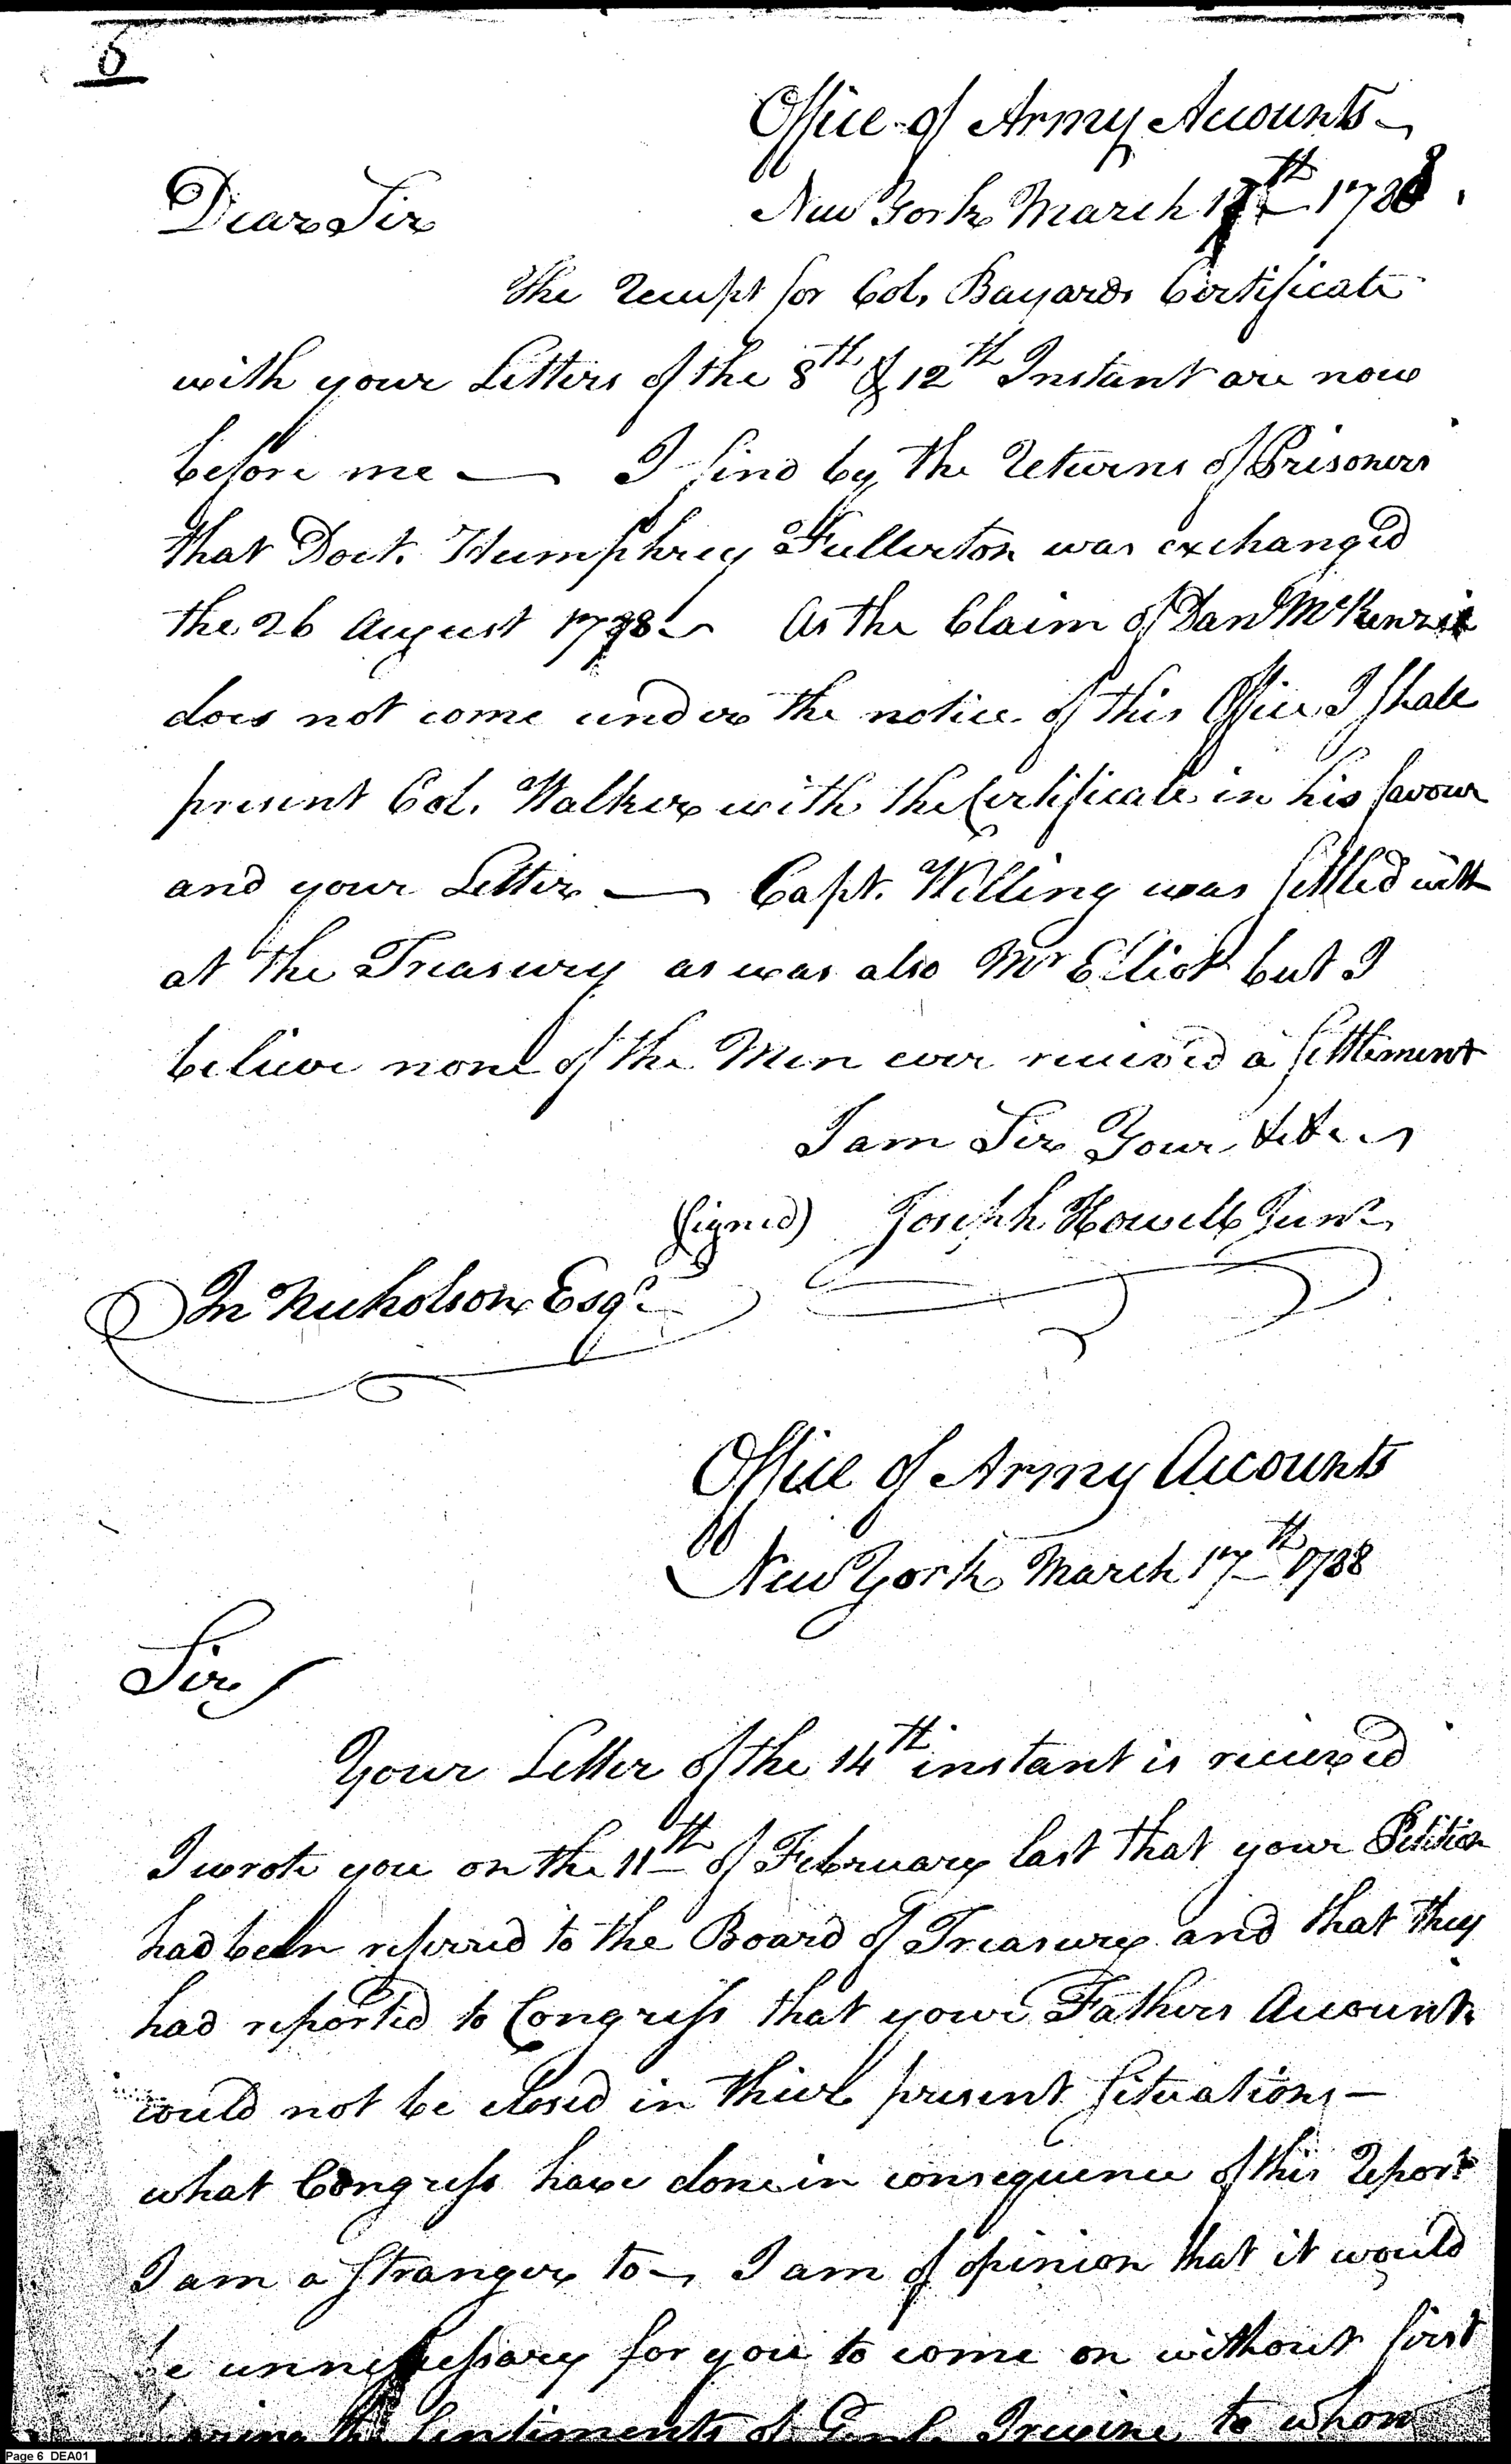 6
Office of Army Accounts
New York March 17th 1788.
Dear Sir
The receipt for Col. Bayards Certificate
with your Letters of the 8th & 12th Instant are now
before me — I find by the returns of Prisoners
that Doct. Humphrey Fullerton was exchanged
the 26 August 1778 — As the Claim of Danl McKenzie
does not come under the notice of this Office I shall
present Col. Walker with the Certificate in his favour
and your Letter — Capt. Willing was settled with
at the Treasury as was also Mr Elliot but I
believe none of the Men ever received a settlement
I am Sir Your &c &c
(signed) Joseph Howell Junr
Jn Nicholson Esqr
Office of Army Accounts
New York March 17th 1788
Sir
Your Letter of the 14th instant is received
I wrote you on the 11th of February last that your Petition
had been referred to the Board of Treasury and that they
had reported to Congress that your Fathers Accounts
could not be closed in thier present situations —
what Congress have done in consequence of this Report
I am a stranger to — I am of opinion that it would
be unnessessary for you to come on without first
the sentiments of Genl Irwine to whom
Page 6 DEA01